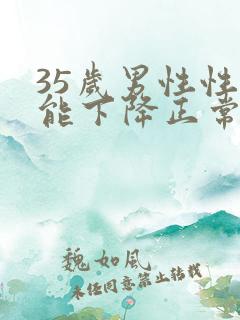 35岁男性性
能下降正常
魏如风
未经同意禁止转载